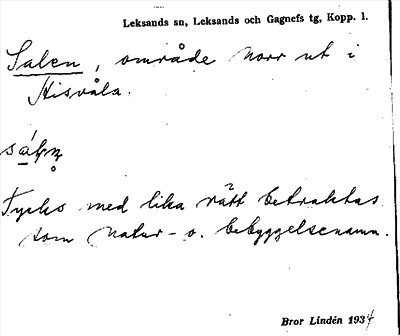 Leksands sn, Leksands och Gagnefs tg, Kopp. l.
Salen, område norr ut i
Hisvåla.
Tycks med lika rätt betraktas
som natur- o. bebyggelsenamn.
Bror Lindén 1934